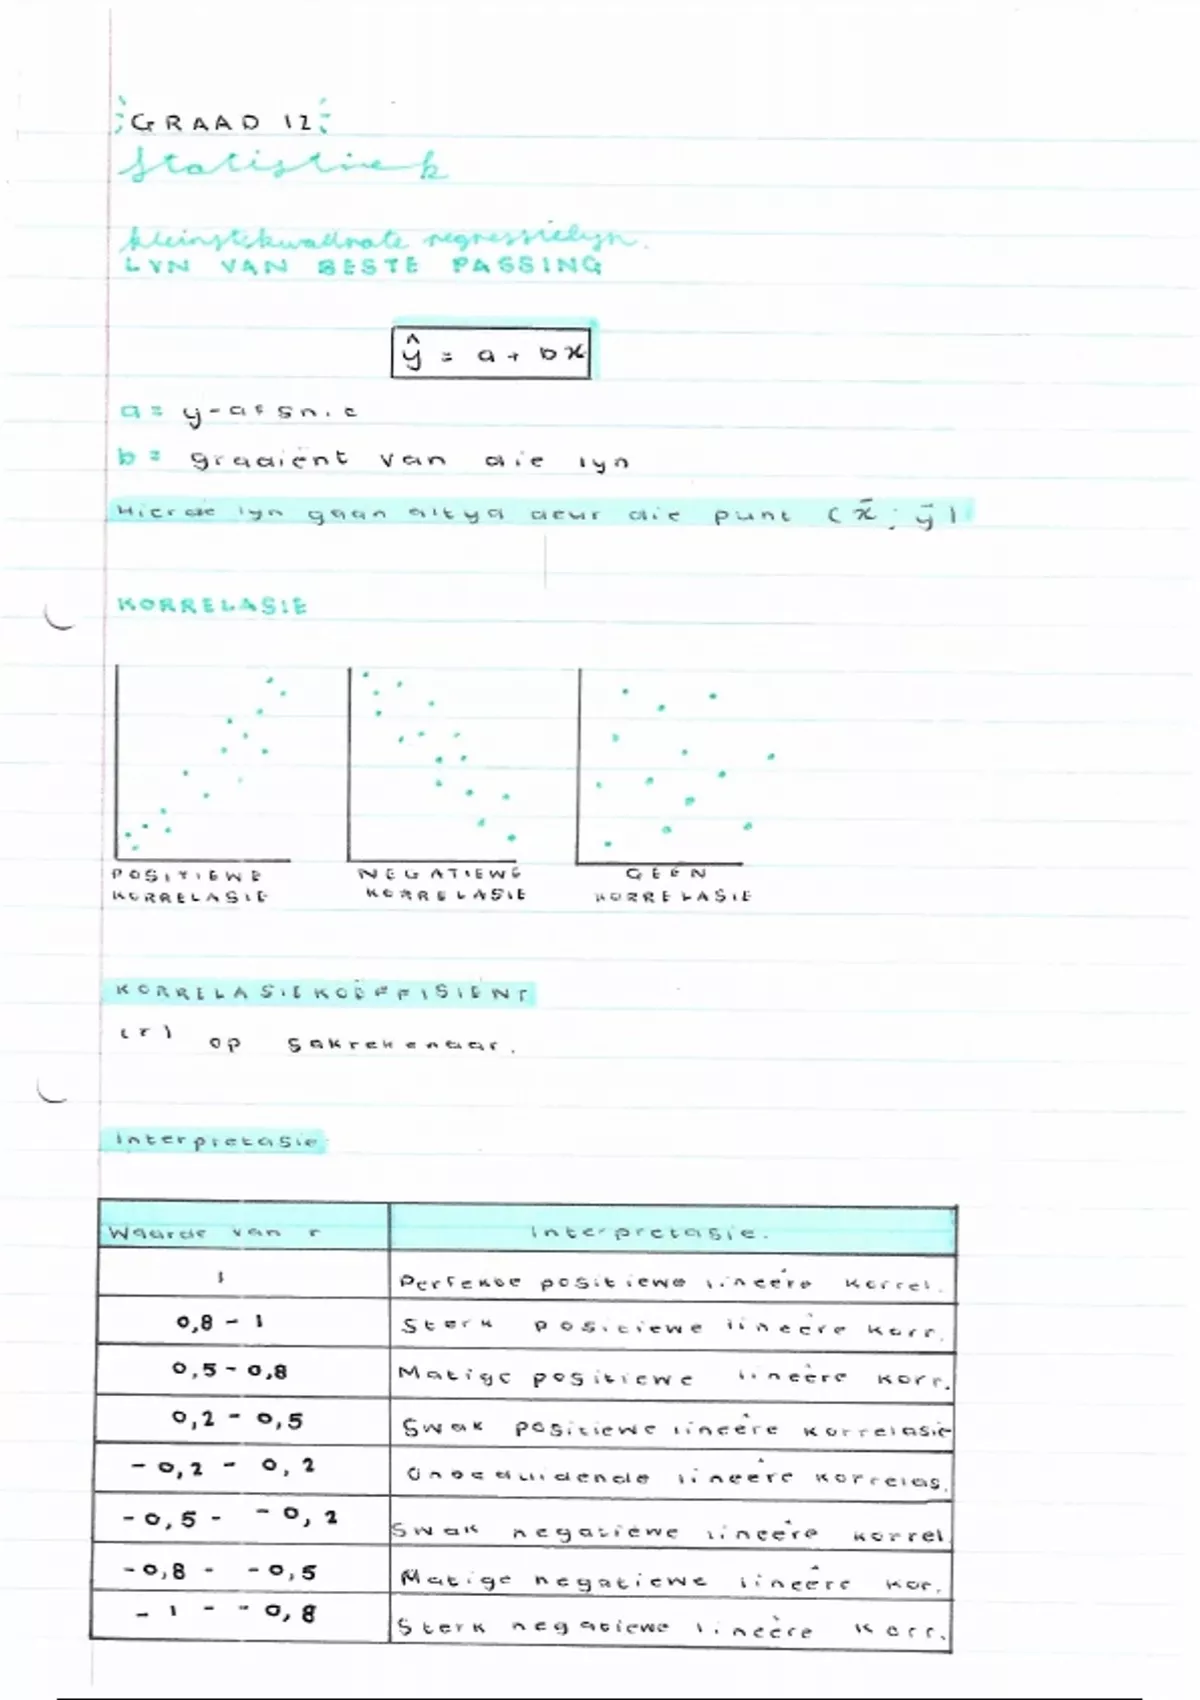 GRAAD 12
Statistiek
kleinstekwadrate regressielyn.
LYN VAN BESTE PASSING
ŷ = a + bx
a = y-afsn.c
b = gradiënt van die lyn
Hierdie lyn gaan altyd deur die punt (x̄ ; ȳ)
KORRELASIE
POSITIEWE KORRELASIE
NEGATIEWE KORRELASIE
GEEN KORRELASIE
KORRELASIEKOËFFISIËNT
(r) op sakrekenaar.
Interpretasie
Waarde van r Interpretasie.
1 Perfekte positiewe lineêre korrel.
0,8 - 1 Sterk positiewe lineêre korr.
0,5 - 0,8 Matige positiewe lineêre korr.
0,2 - 0,5 Swak positiewe lineêre korrelasie
-0,2 - 0,2 Onbeduidende lineêre korrelas.
-0,5 - -0,2 Swak negatiewe lineêre korrel.
-0,8 - -0,5 Matige negatiewe lineêre kor.
-1 - -0,8 Sterk negatiewe lineêre korr.